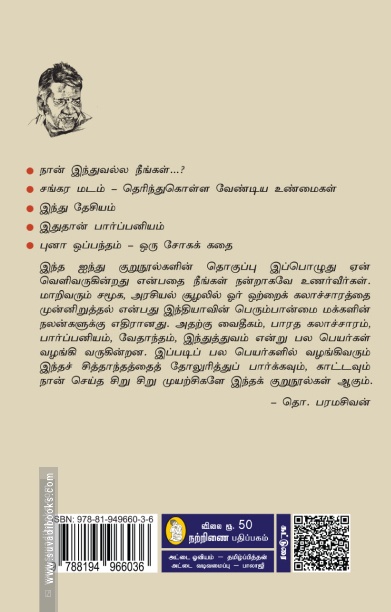 நான் இந்துவல்ல நீங்கள்...?
சங்கர மடம் – தெரிந்துகொள்ள வேண்டிய உண்மைகள்
இந்து தேசியம்
இதுதான் பார்ப்பனியம்
புனா ஒப்பந்தம் – ஒரு சோகக் கதை
இந்த ஐந்து குறுநூல்களின் தொகுப்பு இப்பொழுது ஏன்
வெளிவருகின்றது என்பதை நீங்கள் நன்றாகவே உணர்வீர்கள்.
மாறிவரும் சமூக, அரசியல் சூழலில் ஓர் ஒற்றைக் கலாச்சாரத்தை
முன்னிறுத்தல் என்பது இந்தியாவின் பெரும்பான்மை மக்களின்
நலன்களுக்கு எதிரானது. அதற்கு வைதீகம், பாரத கலாச்சாரம்,
பார்ப்பனியம், வேதாந்தம், இந்துத்துவம் என்று பல பெயர்கள்
வழங்கி வருகின்றன. இப்படிப் பல பெயர்களில் வழங்கிவரும்
இந்தச் சித்தாந்தத்தைத் தோலுரித்துப் பார்க்கவும், காட்டவும்
நான் செய்த சிறு சிறு முயற்சிகளே இந்தக் குறுநூல்கள் ஆகும்.
– தொ. பரமசிவன்
www.suvadibooks.com
ISBN: 978-81-949660-3-6
788194 966036
விலை ரூ. 50
நற்றிணை பதிப்பகம்
அட்டை ஓவியம் – தமிழ்ப்பித்தன்
அட்டை வடிவமைப்பு – பாலாஜி